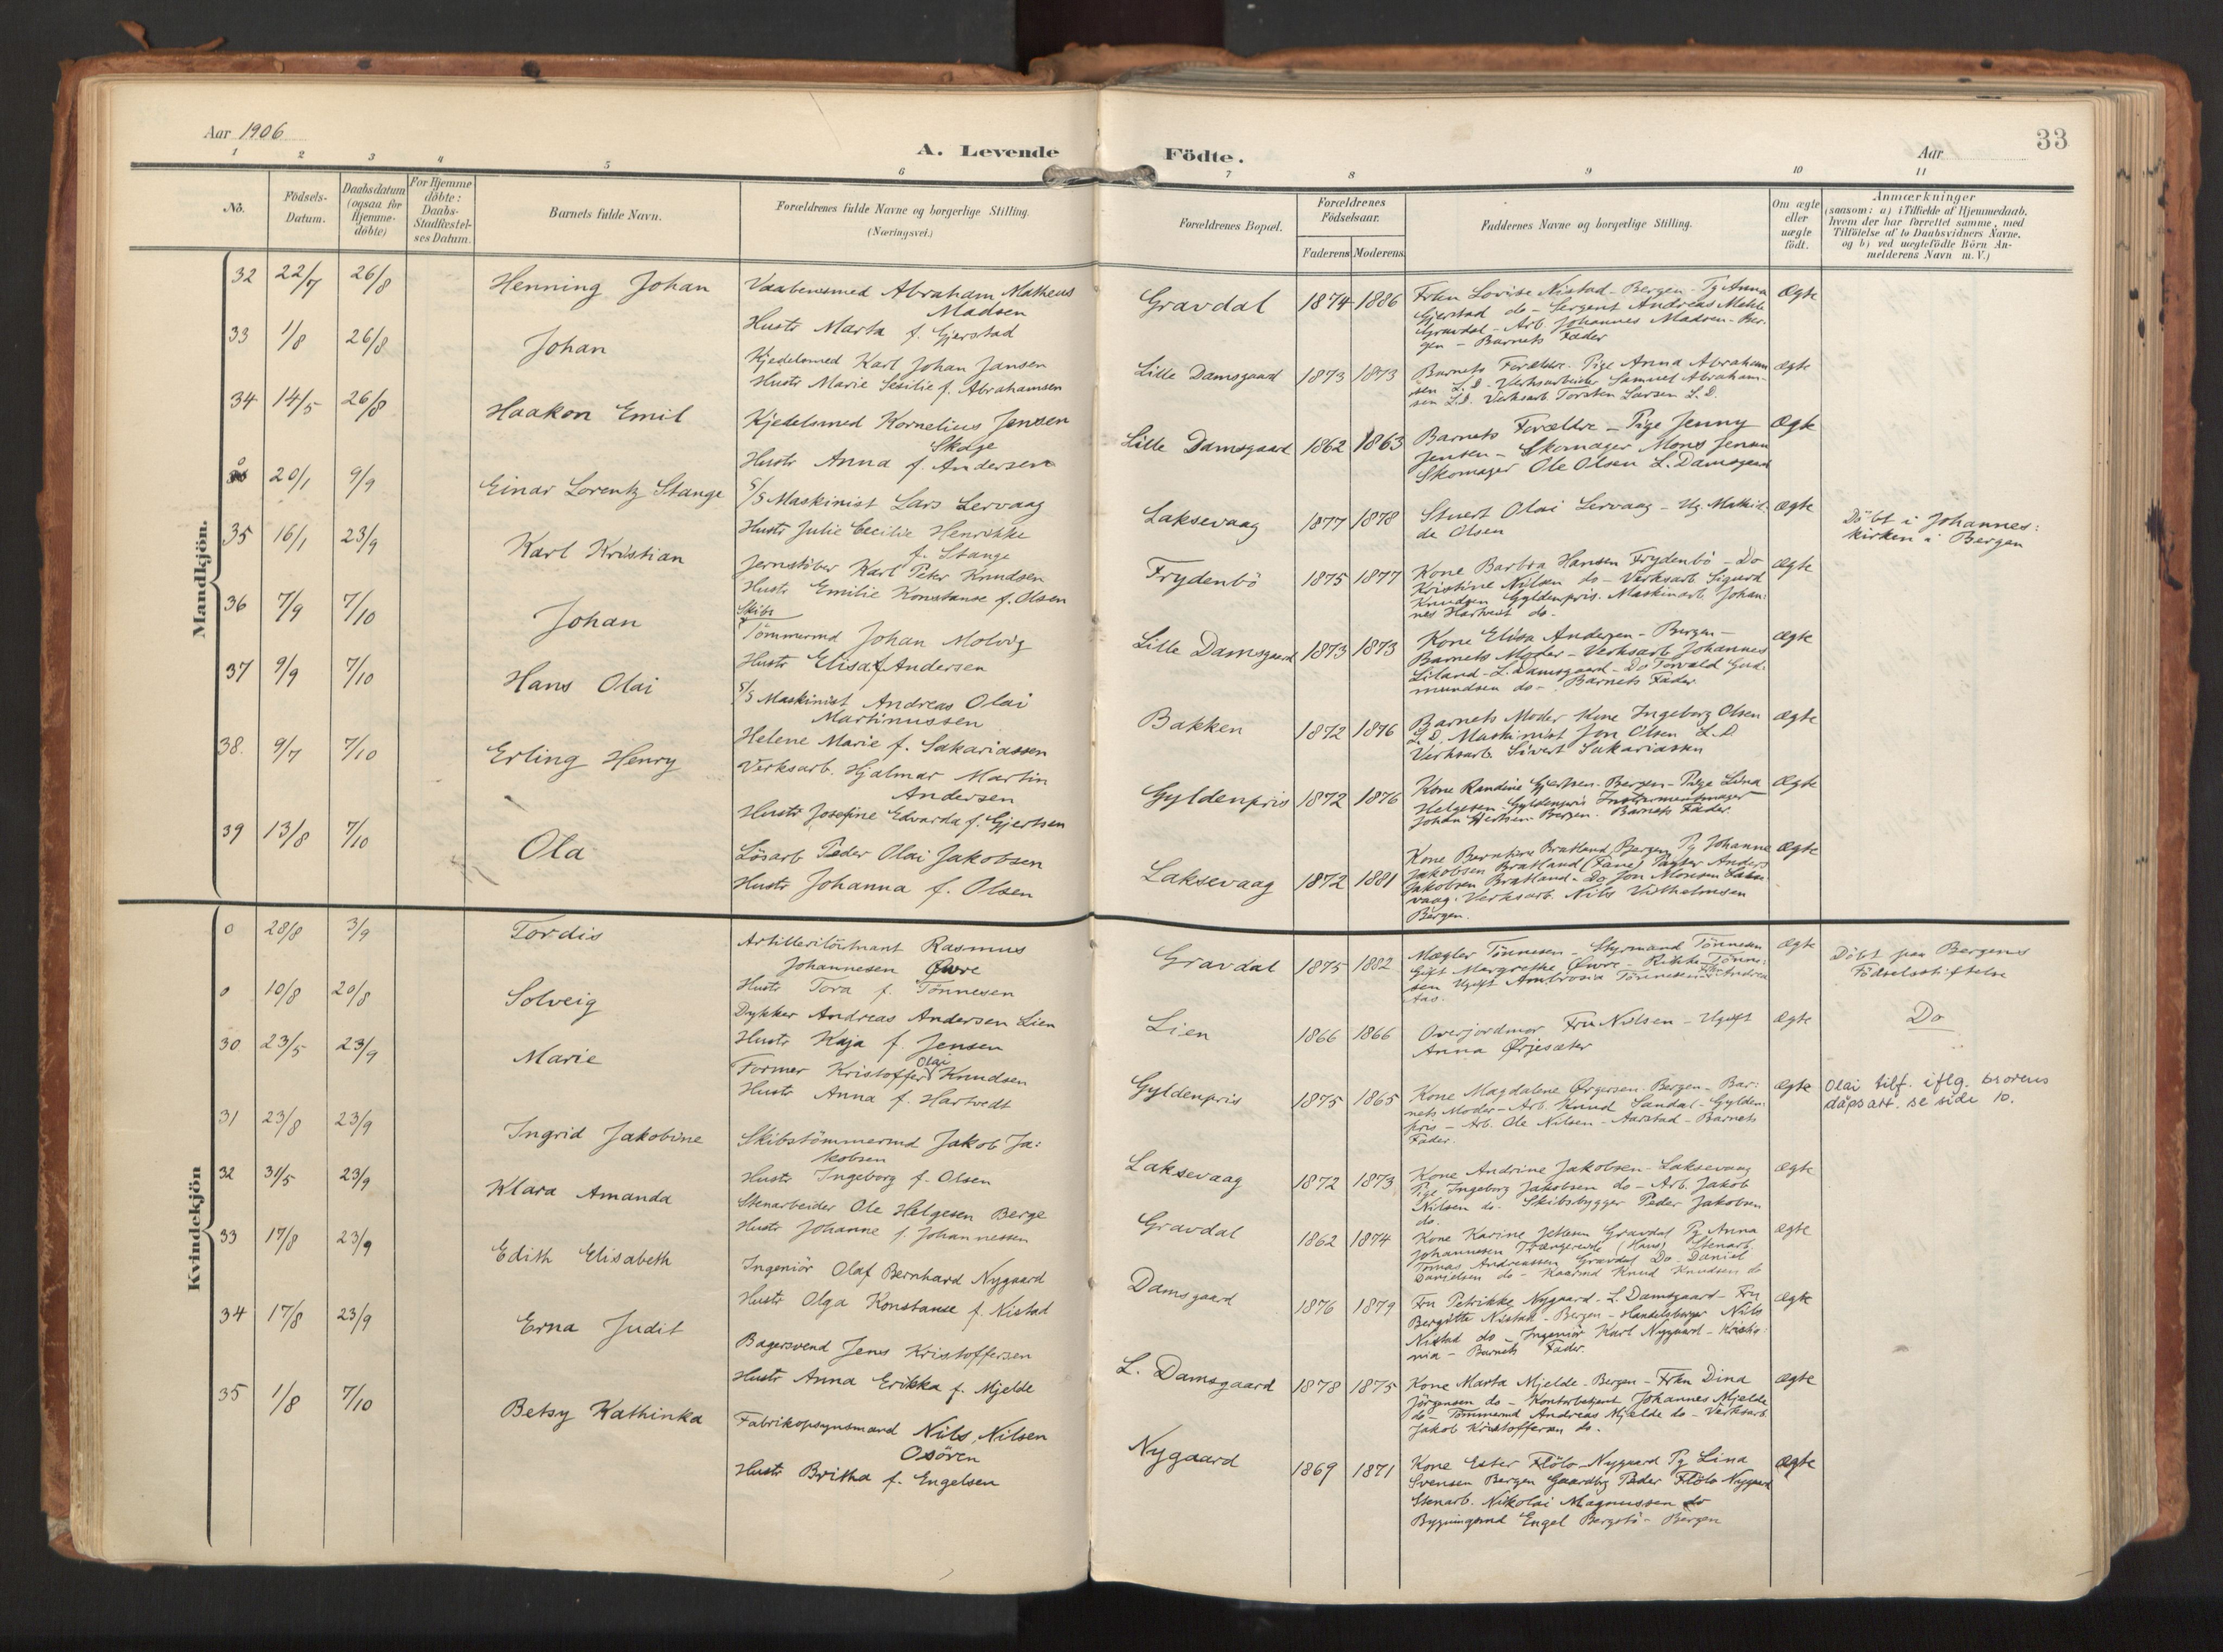 Aar 1906
A. Levende Födte.
Aar
33
1 2 3 4 5 6 7 8 9 10 11
No.
Födsels-Datum.
Daabsdatum (ogsaa for Hjemme-döbte)
For Hjemme döbte: Daabs-Stadfæstel-ses Datum.
Barnets fulde Navn.
Forældrenes fulde Navne og borgerlige Stilling. (Næringsvei.)
Forældrenes Bopæl.
Forældrenes Födselsaar.
Faderens Moderens
Faddernes Navne og borgerlige Stilling.
Om ægte eller uægte födt.
Anmærkninger
(saasom: a) i Tilfælde af Hjemmedaab, hvem der har forrettet samme, med Tilföielse af to Daabsvidners Navne, og b) ved uægtefödte Börn An-melderens Navn m. V.)
Mandkjön.
32 22/7 26/8 Henning Johan
Vaabensmed Abraham Matheus
Madsen
Hustr Marta f. Gjerstad
Gravdal 1874 1886
Frkn Lovise Nistad - Bergen - Pg Anna
Gjerstad do - Sergent Andreas
Gravdal - Arb. Johannes Madsen - Ber-
gen - Barnets Fader
Ægte
33 1/8 26/8 Johan
Kjedelsmed Karl Johan Jansen
Hustr Marie Sesilie f. Abrahamsen
Lille Damsgaard 1873 1873
Barnets Forældre. Pige Anna Abraham
sen L.D - Verksarbeider Samuel Abraham-
sen L.D. Verksarb Torsten Larsen L.D.
ægte
34 14/5 26/8 Haakon Emil
Kjedelsmed Kornelius Jensen
Skage
Hustr Anna f. Andersen
Lille Damsgaard 1862 1863
Barnets Forældre - Pige Jenny
Jensen - Skomager Mons Jensen
Skomager Ole Olsen L. Damsgaard
Ægte
0 20/1 9/9 Einar Lorentz Stange
S/S Maskinist Lars Lervaag
Hustr Julie Cecilie Henrikke
f. Stange
Laksevaag 1877 1878
Stuert Olai Lervaag - Ug. Mathil-
de Olsen
ægte
Döbt i Johannes:
kirken i Bergen
35 16/1 23/9 Karl Kristian
Jernstöber Karl Peter Knudsen
Hustr Emilie Konstanse f. Olsen
Frydenbö 1875 1877
Kone Barbra Hansen Frydenbö - Do
Kristine Nilsen do - Verksarb Sigurd
Knudsen Gyldenpris. Maskinarb. Johan:
nes Hartvedt do.
ægte
36 7/9 7/10 Johan
Skibs
Tömmermd Johan Molvig
Hustr Elisa f. Andersen
Lille Damsgaard 1873 1873
Kone Elisa Andersen - Bergen -
Barnets Moder - Verksarb Johannes
Liland - L. Damsgaard - Do Torvald Gud-
mundsen do - Barnets Fader
ægte
37 9/9 7/10 Hans Olai
S/S Maskinist Andreas Olai
Martinussen
Helene Marie f. Sakariassen
Bakken 1872 1876
Barnets Moder Kone Ingeborg Olsen
L.D. Maskinist Jon Olsen L.D
Verksarb. Sivert Sakariassen
ægte
38. 9/7 7/10 Erling Henry
Verksarb. Hjalmar Martin
Andersen
Hustr Josefine Edvarda f. Gjertsen
Gyldenpris 1872 1876
Kone Randine Gjertsen. Bergen - Pige Lina
Helgesen - Gyldenpris Instrumentmager
Johan Gjertsen Bergen. Barnets Fader.
Ægte
39 13/8 7/10 Ola
Lösarb Peder Olai Jakobsen
Hustr Johanna f. Olsen
Laksevaag 1872 1881
Kone Berntine Bratland Bergen Pg Johanne
Jakobsen Bratland (Fane) Anders
Jakobsen Bratland - Do Jon Monsen Lakse-
vaag. Verksarb. Nils Vilhelmsen
Bergen.
Ægte
Kvindekjön
0 28/8 3/9 Tordis
Artilleriløitnant Rasmus
Johannesen Øvre
Hustr Tora f. Tönnesen
Gravdal 1875 1882
Mægler Tönnesen - Styrmand Tönnesen
Gift Margrethe Øvre - Rikke Tönne:
sen Ugift Ambrosia Tönnesen Andrea
Aas.
ægte
Döbt paa Bergens
Födselsstiftelse
0 10/8 20/8 Solveig
Dykker Andreas Andersen Lien
Hustr Kaja f. Jensen
Lien 1866 1866
Overjordmor Fru Nilsen - Ugift
Anna Ørjesæter
Ægte
Do
30 23/5 23/9 Marie
Olai
Former Kristoffer Knudsen
Hustr Anna f. Hartvedt
Gyldenpris 1875 1865
Kone Magdalene Ørgersen Bergen - Bar:
nets Moder - Arb. Knud Sandal - Gylden:
pris - Arb. Ole Nilsen - Aarstad - Barnets
Fader.
ægte
Olai tilf. iflg. brorens
dåpsatt. se side 10.
31 23/8 23/9 Ingrid Jakobine
Skibstömmermd Jakob Ja:
kobsen
Hustr Ingeborg f. Olsen
Laksevaag 1872 1873
Kone Andrine Jakobsen - Laksevaag
Pige Ingeborg Jakobsen do - Arb. Jakob
Nilsen do - Skibsbygger Peder Jakobsen
do.
ægte
32 31/5 23/9 Klara Amanda
Stenarbeider Ole Helgesen Berge
Hustr Johanne f. Johannessen
Gravdal 1862 1874
Kone Karine Gravdal Pg Anna
Johannesen (Hans) Stenarb.
Tomas Andreassen Gravdal Do - Daniel
Danielsen do - Knud Knudsen do
ægte
33 17/8 23/9 Edith Elisabeth
Ingeniör Olaf Bernhard Nygaard
Hustr Olga Konstanse f. Nistad
Damsgaard 1876 1879
Fru Petrikke Nygaard - L. Damsgaard - Fru
Bergitte Nistad - Bergen - Handelsborger Nils
Nistad do - Ingeniör Karl Nygaard - Kristia:
nia - Barnets Fader.
Ægte
34 17/8 23/9 Erna Judit
Bagersvend Jens Kristoffersen
Hustr Anna Erikka f. Mjelde
L. Damsgaard 1878 1875
Kone Marta Mjelde - Bergen - Frkn Dina
Jörgensen do - Kontorbetjent Johannes Mjelde
do - Tömmermd Andreas Mjelde do - Verksarb.
Jakob Kristoffersen do.
ægte
35 1/8 7/10 Betsy Kathinka
Fabrikopsynsmand Nils Nilsen
Osören
Hustr Britha f. Engelsen
Nygaard 1869 1871
Kone Ester Flölo - Nygaard Pg Lina
Svensen Bergen Gaardbr Peder Flölo Nygaard
Stenarb. Nikolai Magnussen do
Bygningsmd Engel Bergsbö - Bergen
ægte